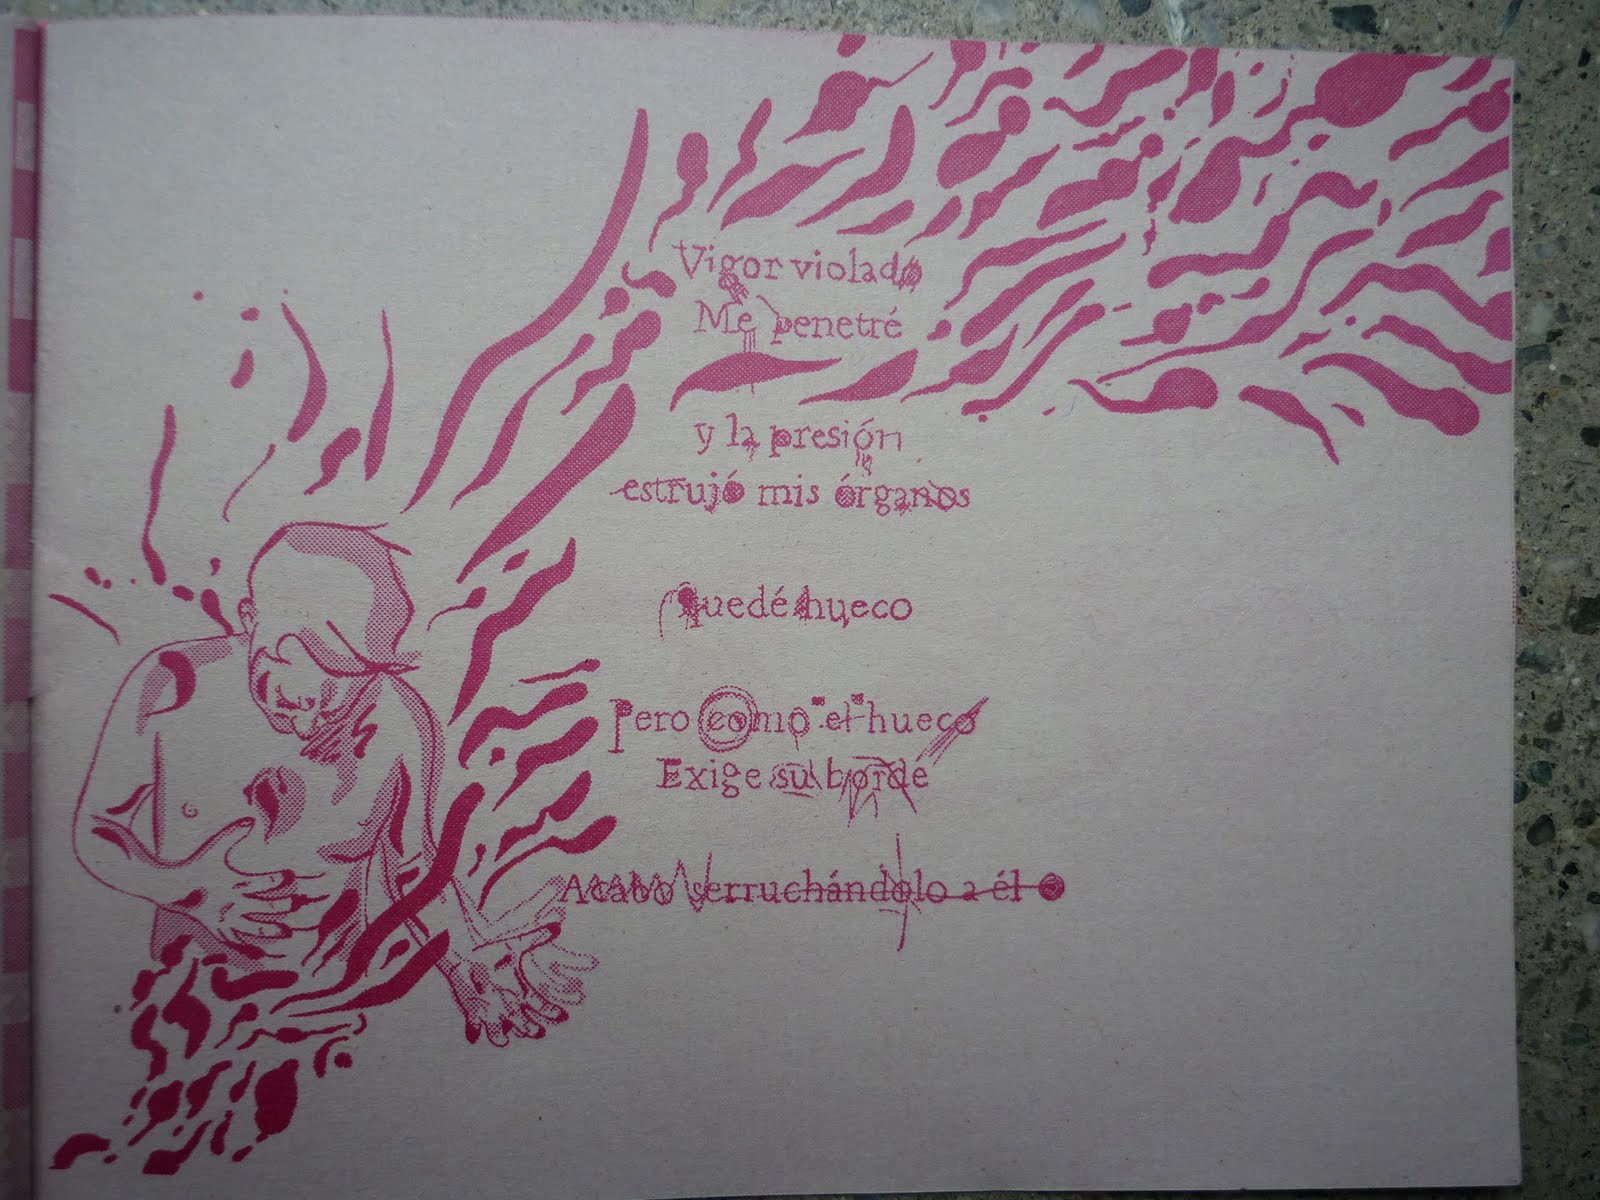 Vigor violado
Me penetré
y la presión
estrujó mis órganos
Quedé hueco
Pero como "el" hueco
Exige su borde
Acabo serruchándolo a él